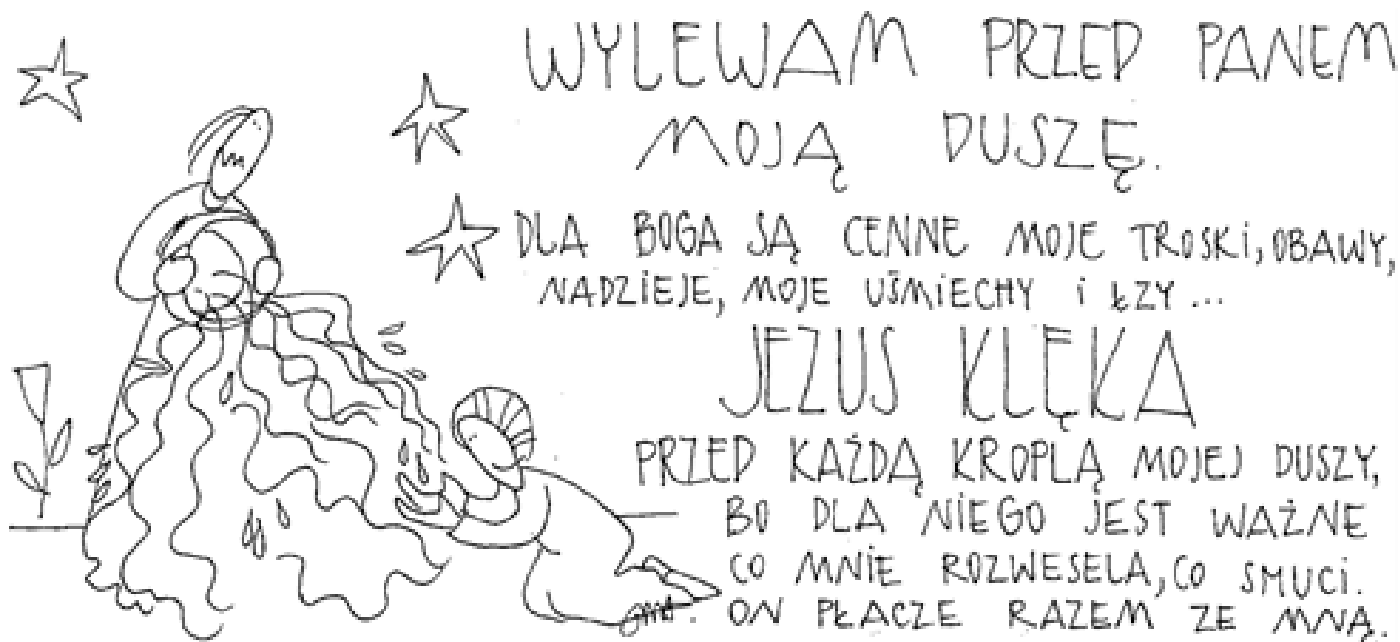 WYLEWAM PRZED PANEM
MOJĄ DUSZĘ.
DLA BOGA SĄ CENNE MOJE TROSKi, OBAWY,
NADZiEJE, MOJE UŚMiECHY i ŁZY...
JEZUS KLĘKA
PRZED KAŻDĄ KROPLĄ MOJEJ DUSZY,
BO DLA NiEGO JEST WAŻNE
CO MNiE ROZWESELA, CO SMUCi.
ON PŁACZE RAZEM ZE MNĄ.